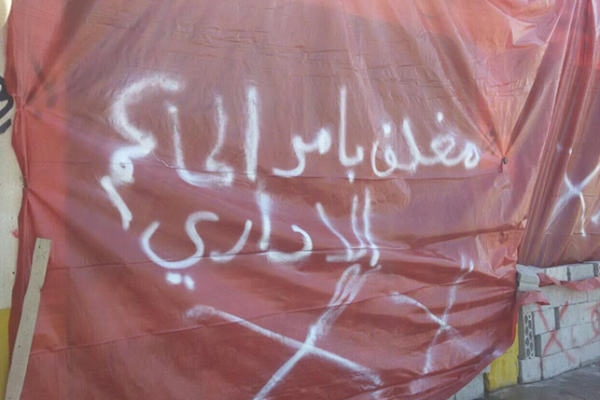 مغلق بامر الحاكم
الاداري